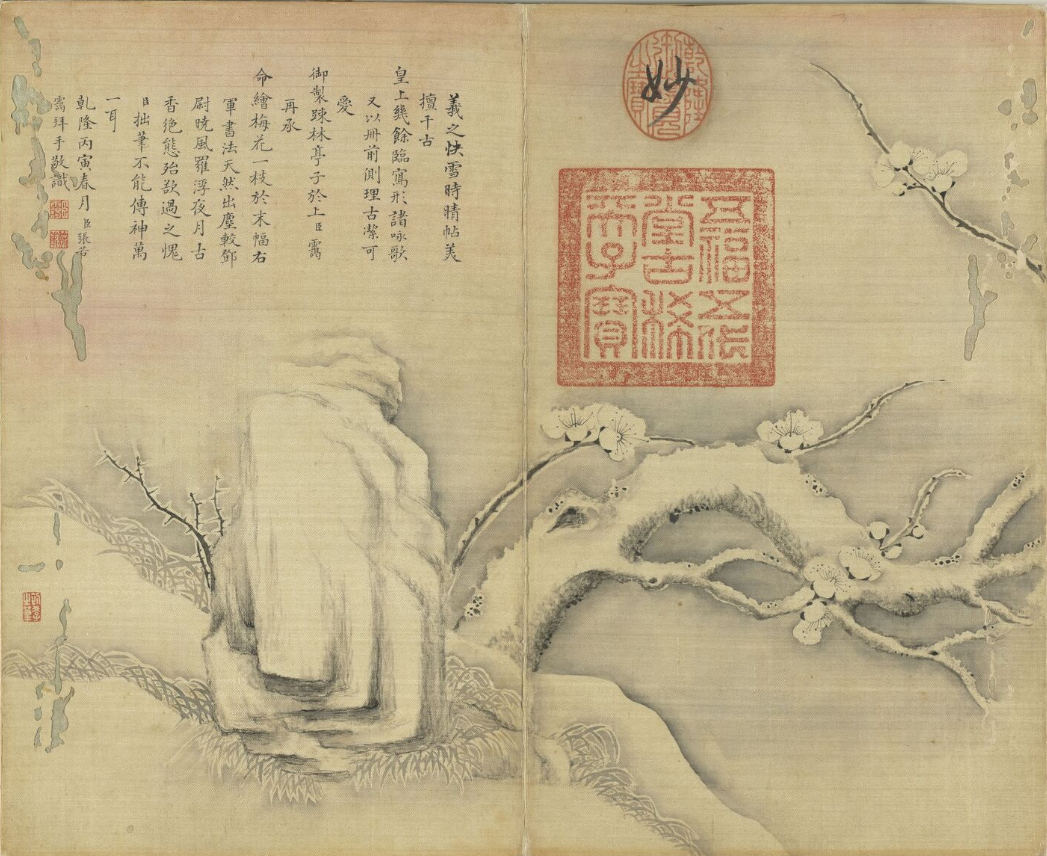 妙
五福五代
堂古稀
天子寶
羲之快雪時晴帖美
擅千古
皇上幾餘臨寫形諸咏歌
又以冊前側理古潔可
愛
御製疎林亭子於上臣靄
再承
命繪梅花一枝於末幅右
軍書法天然出塵較鄧
尉曉風羅浮夜月古
香絶態殆欲過之愧
臣拙筆不能傳神萬
一耳
乾隆丙寅春月臣張若
靄拜手敬識